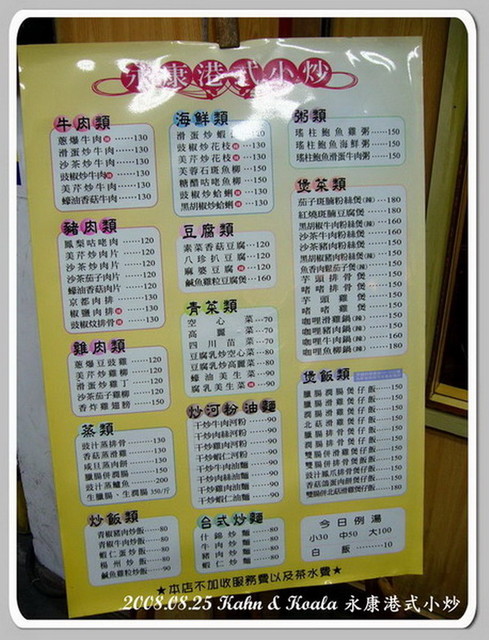 永康港式小炒
牛肉類
蔥爆牛肉 130
滑蛋炒牛肉 130
沙茶炒牛肉 130
豉椒炒牛肉 130
美芹炒牛肉 130
蠔油香菇牛肉 130
豬肉類
鳳梨咕咾肉 120
美芹炒肉片 120
沙茶炒肉片 120
蠔油香菇肉片 120
京都肉排 130
椒鹽肉排 130
豉椒炆排骨 130
雞肉類
蔥爆豆豉雞 120
美芹炒雞柳 120
滑蛋炒雞丁 120
沙茶茄子雞柳 120
香炸雞翅膀 150
蒸類
豉汁蒸排骨
香菇蒸滑雞
鹹魚蒸肉餅
臘腸併潤腸
豉汁蒸鱸魚
生臘腸、生潤腸 350/斤
炒飯類
青椒豬肉炒飯 80
青椒牛肉炒飯 80
蝦仁蛋炒飯 80
楊州炒飯 80
鹹魚雞粒炒飯 90
海鮮類
滑蛋炒蝦
豉椒炒花枝 130
美芹炒花枝 130
芙蓉石斑魚柳 150
糖醋咕咾魚柳 150
豉椒炒蛤蜊 130
黑胡椒炒蛤蜊 130
豆腐類
素菜香菇豆腐 120
八珍扒豆腐 120
麻婆豆腐 120
鹹魚雞粒豆腐 160
青菜類
空心菜 70
高麗菜 70
四川苗菜 70
豆腐乳炒空心菜 80
豆腐乳炒高麗菜 80
蠔油美生菜 90
腐乳美生菜 90
炒河粉 油麵
干炒牛肉河粉 90
干炒豬肉河粉 90
干炒雞肉河粉 90
干炒蝦仁河粉 90
干炒牛肉油麵 90
干炒豬肉油麵 90
干炒雞肉油麵 90
干炒蝦仁油麵 90
台式炒麵
什錦炒麵 80
牛肉炒麵 80
豬肉炒麵 80
蝦仁炒麵 80
粥類
瑤柱鮑魚雞粥 150
瑤柱鮑魚海鮮粥 150
瑤柱鮑魚滑蛋牛肉粥 150
煲菜類
茄子斑腩粉絲煲(辣) 180
紅燒斑腩豆腐煲 180
黑胡椒牛肉粉絲煲(辣) 160
沙茶牛肉粉絲煲(辣) 160
沙茶豬肉粉絲煲(辣) 160
黑胡椒豬肉粉絲煲(辣) 160
魚香肉鬆茄子煲(辣) 160
芋頭排骨煲 160
啫啫排骨煲 160
芋頭雞煲 160
啫啫雞煲 160
咖哩滑雞鍋(辣) 160
咖哩豬肉鍋(辣) 160
咖哩牛肉鍋(辣) 180
咖哩魚柳鍋(辣) 160
煲飯類
臘腸潤腸煲仔飯 150
臘腸滑雞煲仔飯 150
潤腸滑雞煲仔飯 150
北菇滑雞煲仔飯 150
臘腸排骨煲仔飯 150
潤腸排骨煲仔飯 150
雙腸併滑雞煲仔飯 180
雙腸併排骨煲仔飯 180
豉汁鳳爪排骨煲仔飯 150
香菇蒸肉餅煲仔飯 150
雙腸併北菇滑雞煲仔飯 180
今日例湯
小30 中50 大100
白飯 10
★本店不加收服務費以及茶水費★
2008.08.25 Kahn & Koala 永康港式小炒